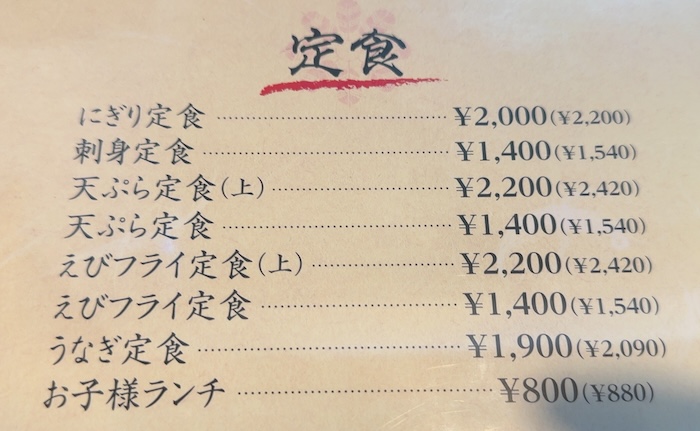 定食
にぎり定食 ¥2,000(¥2,200)
刺身定食 ¥1,400(¥1,540)
天ぷら定食(上) ¥2,200(¥2,420)
天ぷら定食 ¥1,400(¥1,540)
えびフライ定食(上) ¥2,200(¥2,420)
えびフライ定食 ¥1,400(¥1,540)
うなぎ定食 ¥1,900(¥2,090)
お子様ランチ ¥800(¥880)